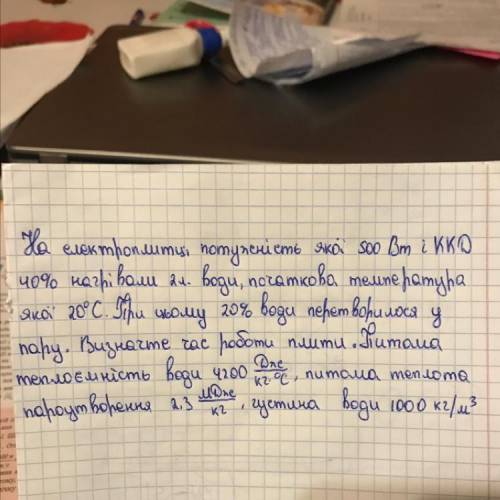 На електроплитці, потужність якої 500 Вт і ККД
40% нагрівали 2л. води, початкова температура
якої 20°С. При цьому 20% води перетворилося у
пару. Визначте час роботи плити. Питома
теплоємність води 4200 Дже/кг°С, питома теплота
пароутворення 2,3 МДже/кг, густина води 1000 кг/м³